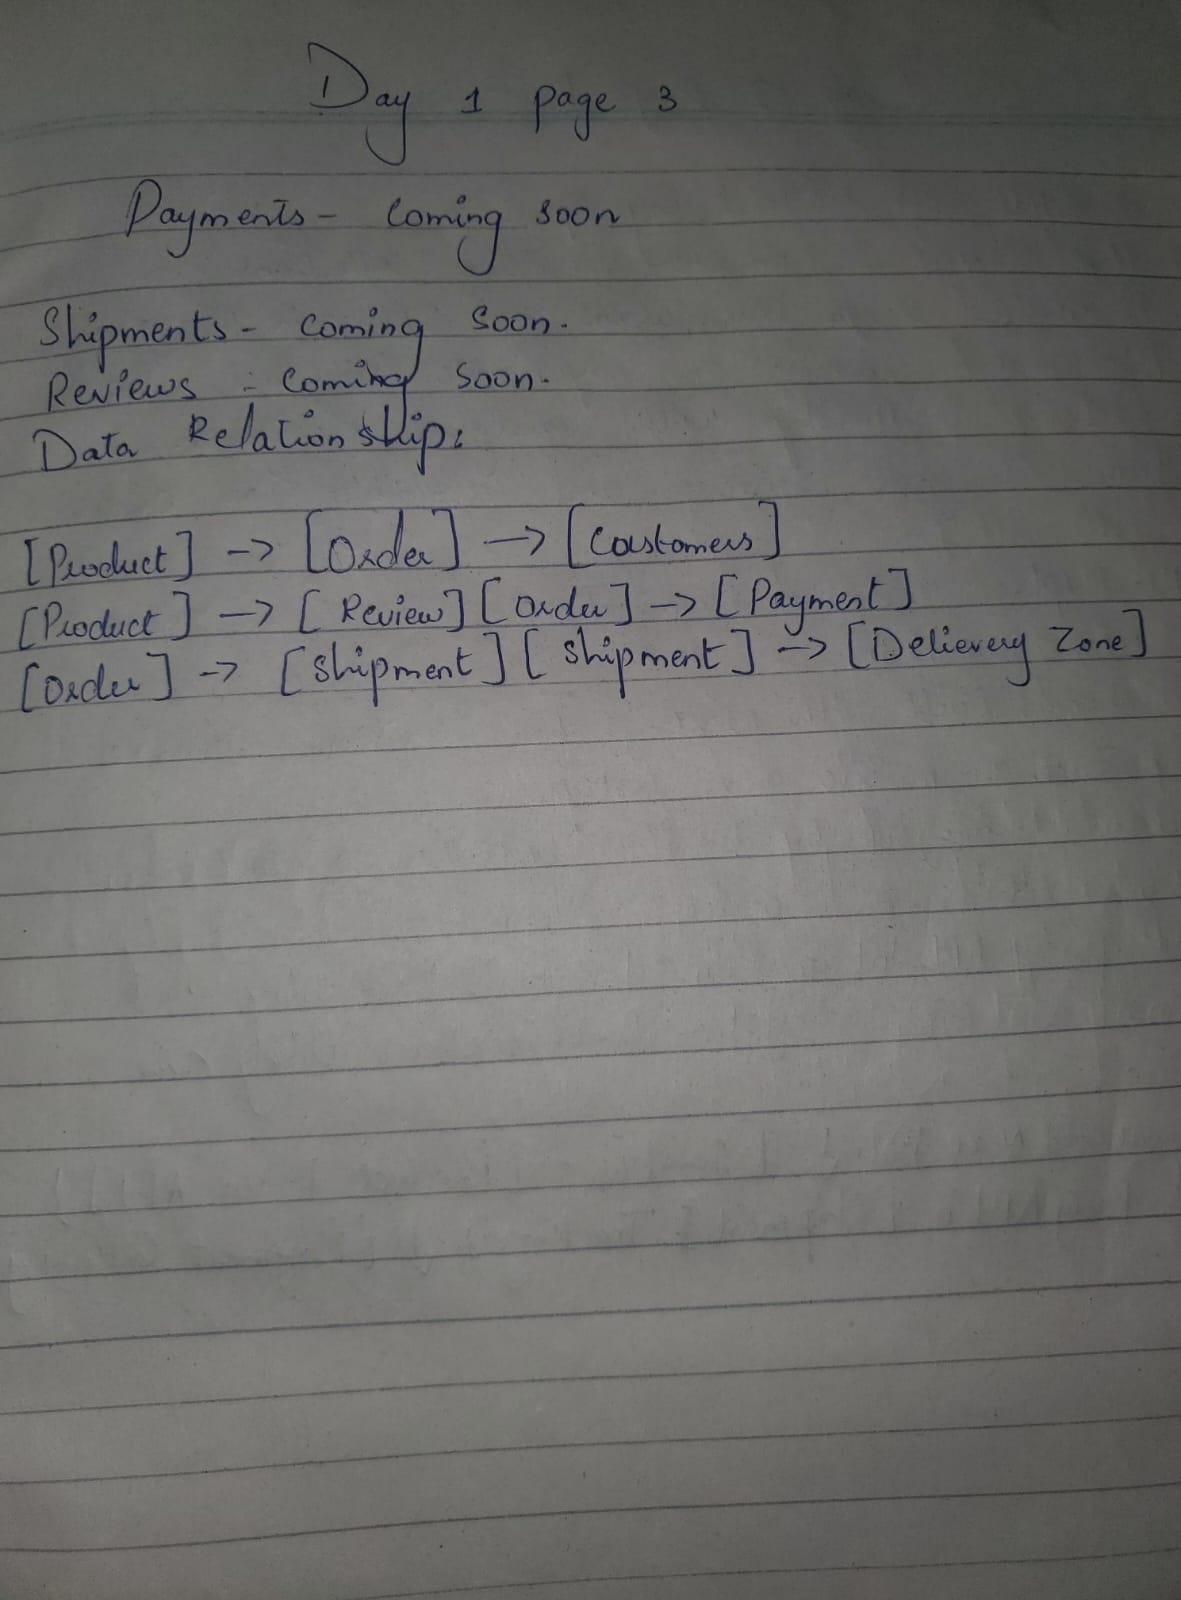 Day 1 page 3
Payments - Coming soon
Shipments - Coming Soon.
Reviews - Coming Soon.
Data Relationship:
[Product] -> [Order] -> [Customers]
[Product] -> [Review] [Order] -> [Payment]
[Order] -> [Shipment] [Shipment] -> [Delievery Zone]